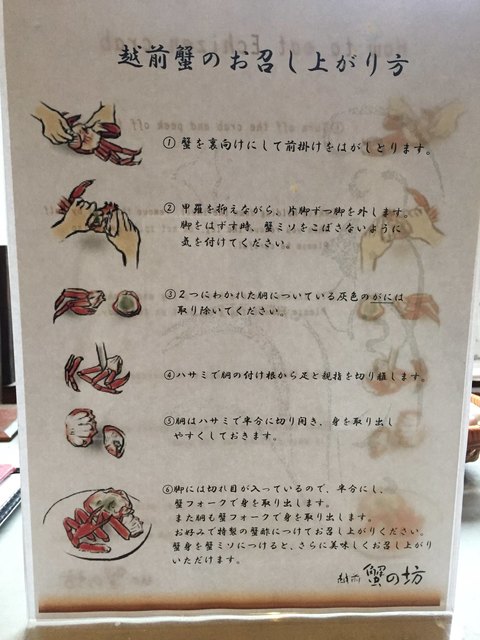 越前蟹のお召し上がり方
①蟹を裏向けにして前掛けをはがしとります。
②甲羅を抑えながら、片脚ずつ脚を外します。
脚をはずす時、蟹ミソをこぼさないように
気を付けてください。
③2つにわかれた胴についている灰色のがには
取り除いてください。
④ハサミで胴の付け根から足と親指を切り離します。
⑤胴はハサミで半分に切り開き、身を取り出し
やすくしておきます。
⑥脚には切れ目が入っているので、半分にし、
蟹フォークで身を取り出します。
また胴も蟹フォークで身を取り出します。
お好みで特製の蟹酢につけてお召し上がりください。
蟹身を蟹ミソにつけると、さらに美味しくお召し上がり
いただけます。
越前 蟹の坊